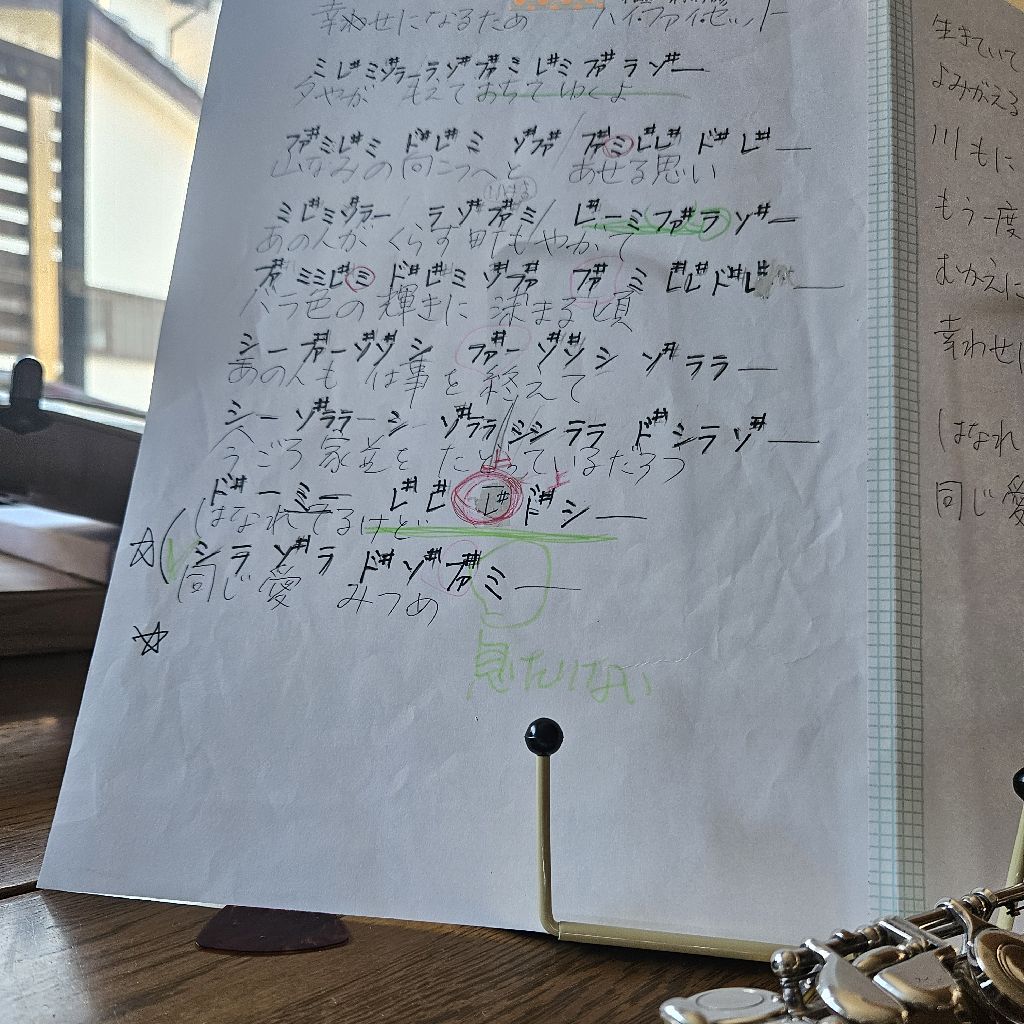 幸わせになるため ハイ・ファイ・セット
ミレ#ミソ#ララソ#ファ#ミレ#ミファ#ラソ#ー
夕やけが もえておちてゆくよ
ファ#ミレ#ミ ド#レ#ミ ソ#ファ#/ファ#ミレ#レ#ド#レ#ー
山なみの向こうへと あせる思い
ミレ#ミソ#ラー/ラソ#ファ#ミ/レ#ーミファ#ラソ#ー
あの人がくらす町もやがて
ファ#ミミレ#ミ ド#レ#ミ ソ#ファ#ファ#ミレ#レ#ド#レ#ー
バラ色の輝きに 染まる頃
シーファ#ーソ#ソ#シ ファ#ーソ#ソ#シ ソ#ララー
あの人も仕事を終えて
シーソ#ララーシーソ#ララシシララド#シラソ#ー
今ごろ家並をたどっているだろう
ド#ーミーレ#レ#レ#ド#シー
☆(はなれてるけど
シラソ#ラ ド#ソ#ファ#ミー
同じ愛 みつめ
☆
息たりない
生きていて
よみがえる
川もに
もう一度
むかえに
幸わせに
(はなれ
同じ愛